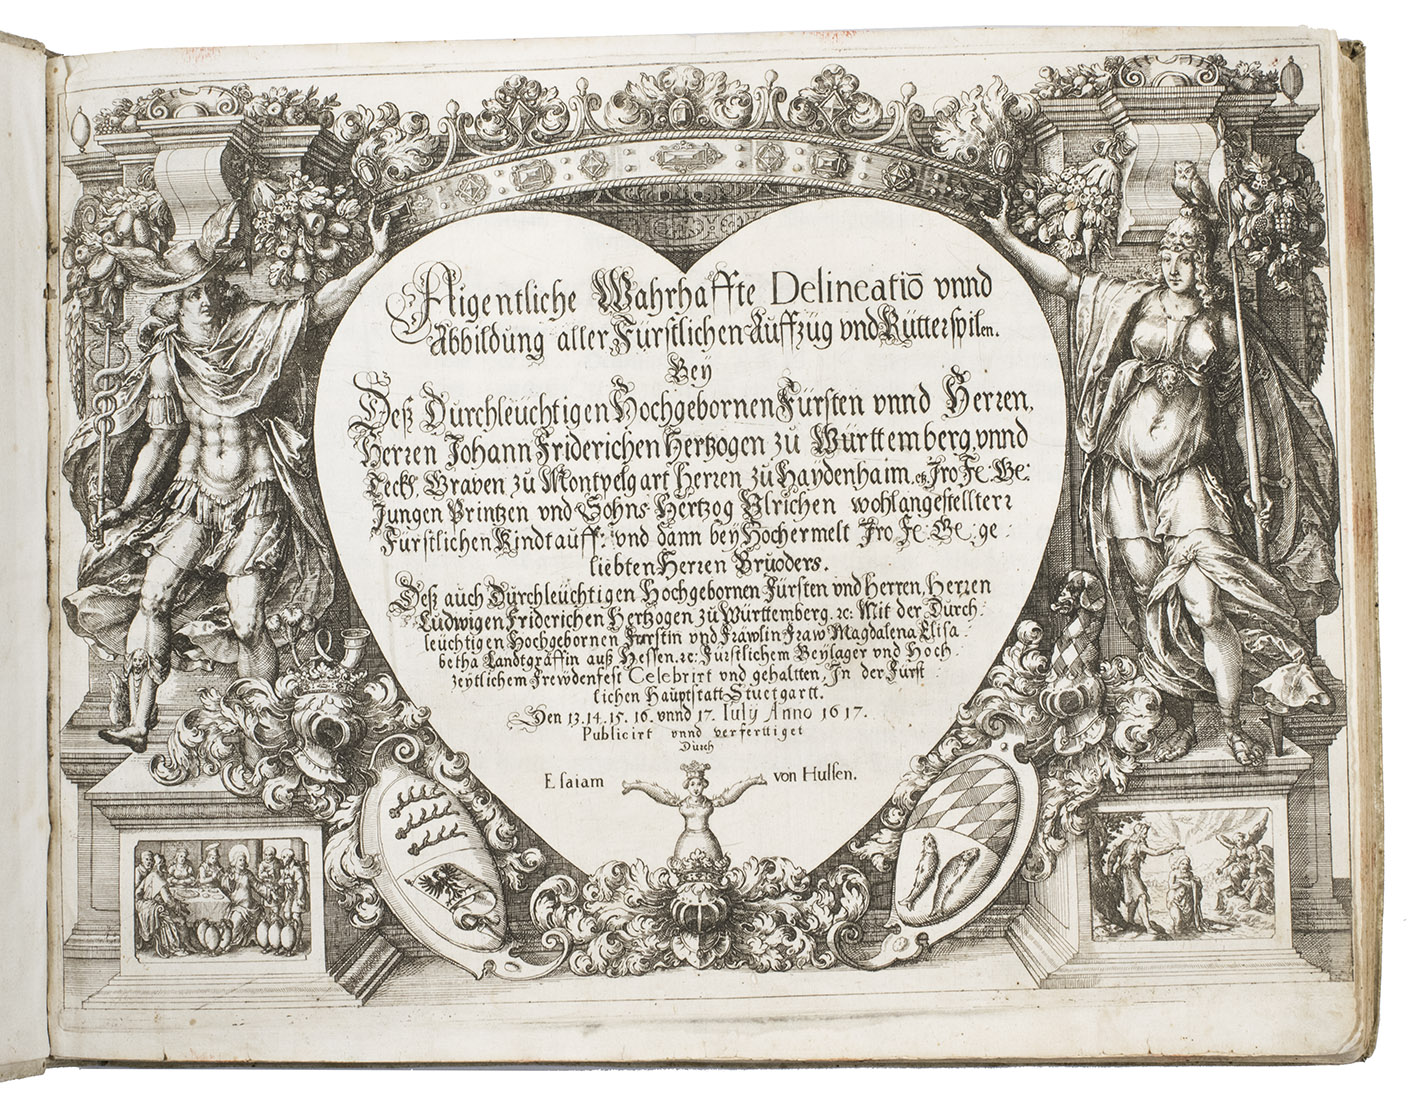 Aigentliche Wahrhaffte Delineatiō vnnd
Abbildung aller Fürstlichen Auffzüg vnd Rütterspilen.
Bey
Deß Durchleüchtigen Hochgebornen Fürsten vnnd Herren,
Herren Johann Friderichen Hertzogen zu Württemberg, vnnd
Teckh, Graven zu Montpelgart Herren zu Haydenhaim, etc. Jro Fe: Ge:
Jungen Printzen vnd Sohns Hertzog Vlrichen wohlangestellter
Fürstlichen Kindtauff: vnd dann bey Hochermelt Jro Fe: Ge: ge-
liebten Herren Brüoders.
Deß auch Durchleüchtigen Hochgebornen Fürsten vnd Herren, Herren
Ludwigen Friderichen Hertzogen zu Württemberg. ꝛc: Mit der Durch-
leüchtigen Hochgebornen Fürstin vnd Fräwlin Fraw Magdalena Elisa-
betha Landtgräffin auß Hessen. ꝛc: Fürstlichem Beylager vnd Hoch-
zeytlichem Frewdenfest Celebrirt vnd gehaltten, In der Fürst-
lichen Hauptstatt Stuetgartt.
Den 13. 14. 15. 16. vnnd 17. Iulÿ Anno 1617.
Publicirt vnnd verferttiget
Durch
Esaiam von Hulsen.